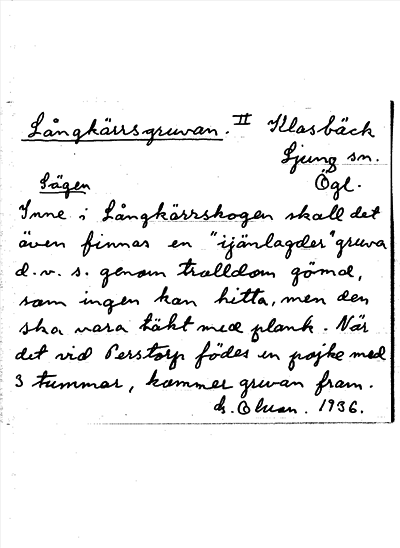 Långkärrsgruvan. II Klasbäck
Ljung sn.
Sägen Ögl.
Inne i Långkärrskogen skall det
även finnas en "ijänlagder" gruva
d.v.s. genom trolldom gömd,
som ingen kan hitta, men den
ska vara täkt med plank. När
det vid Perstorp födes en pojke med
3 tummar, kommer gruvan fram.
1936.